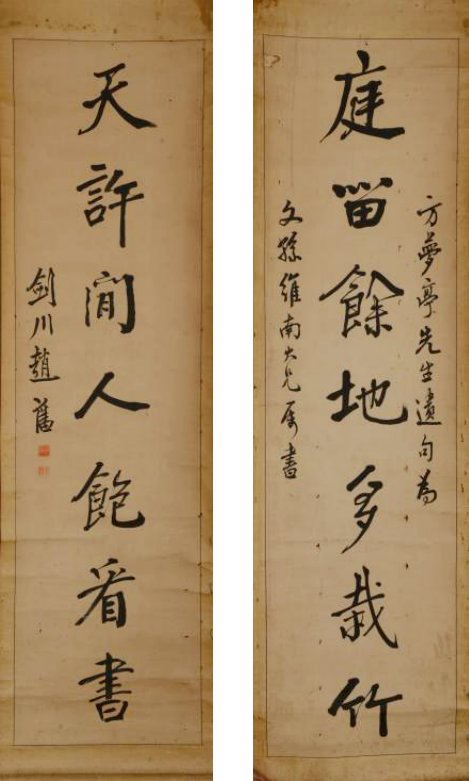 方夢亭先生遺句為
庭留餘地多栽竹
文孫維南大兄属書
天許閒人飽看書
劍川趙